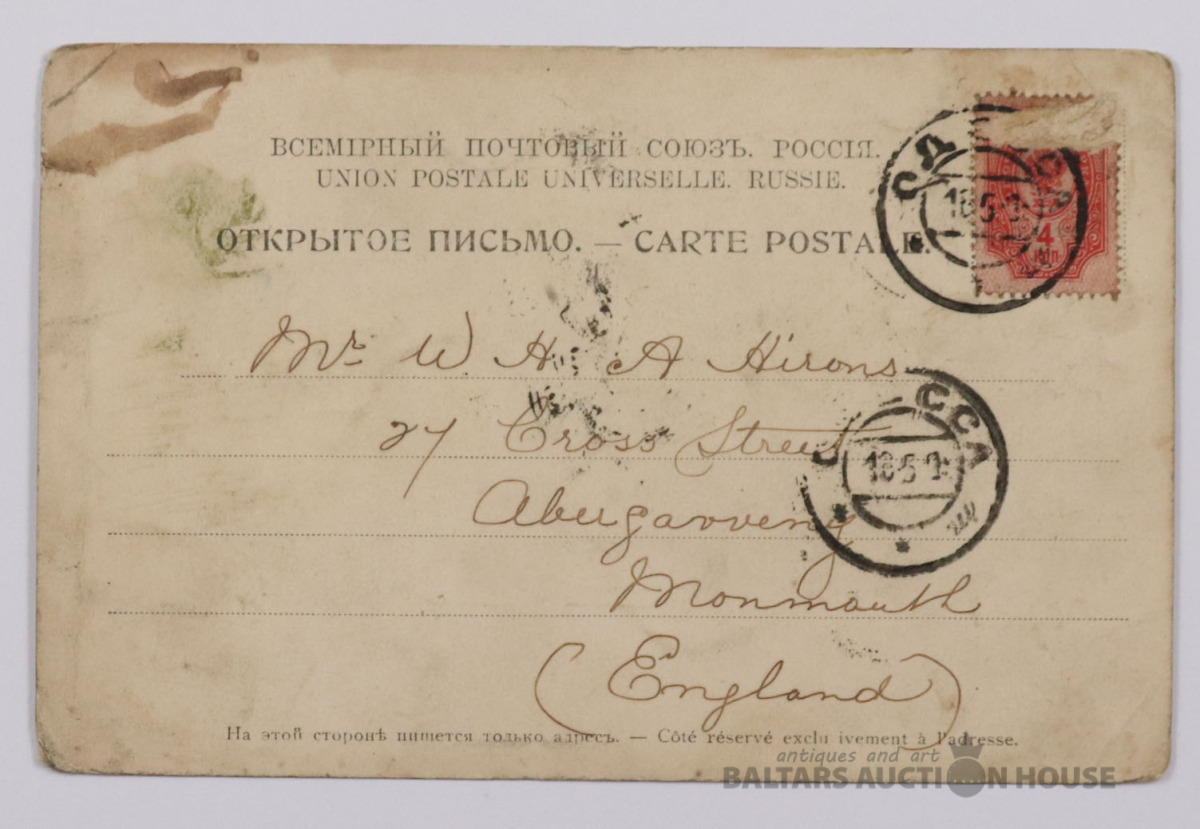 ВСЕМІРНЫЙ ПОЧТОВЫЙ СОЮЗЪ. РОССІЯ.
UNION POSTALE UNIVERSELLE. RUSSIE.
ОТКРЫТОЕ ПИСЬМО. — CARTE POSTALE.
4
КОП
Mr. W. H. A Hirons
27 Cross Street
Abergavveny
Monmouth
(England)
На этой сторонѣ пишется только адресъ. — Côté réservé exclu ivement à l'adresse.
antiques and art
BALTARS AUCTION HOUSE